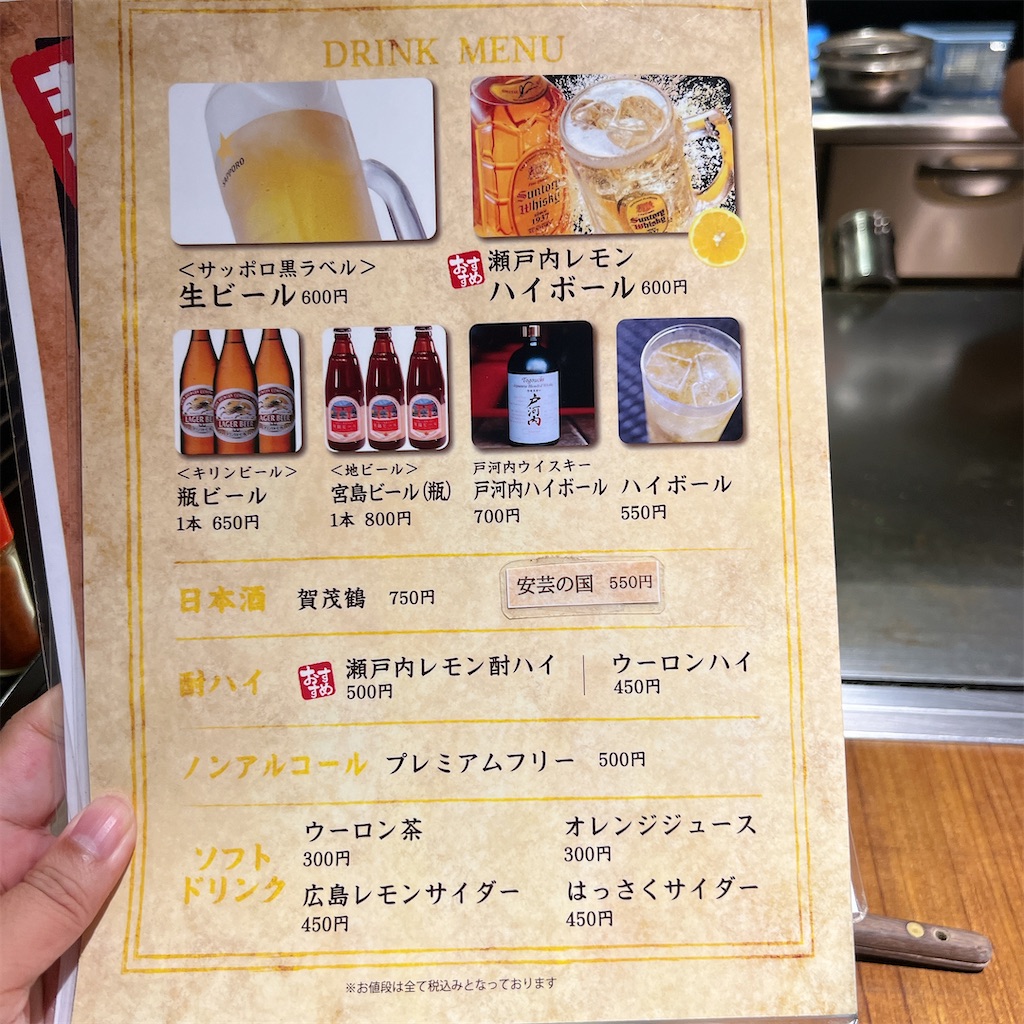 DRINK MENU
SAPPORO
Suntory
Whisky
1937
Suntory
Whisky
<サッポロ黒ラベル>
生ビール 600円
おすすめ
瀬戸内レモン
ハイボール 600円
LAGER BEER
LAGER BEER
LAGER BEER
Togouchi
戸河内
<キリンビール>
瓶ビール
1本 650円
<地ビール>
宮島ビール(瓶)
1本 800円
戸河内ウイスキー
戸河内ハイボール
700円
ハイボール
550円
日本酒 賀茂鶴 750円
安芸の国 550円
酎ハイ
おすすめ
瀬戸内レモン酎ハイ
500円
ウーロンハイ
450円
ノンアルコール プレミアムフリー 500円
ソフト
ドリンク
ウーロン茶
300円
オレンジジュース
300円
広島レモンサイダー
450円
はっさくサイダー
450円
※お値段は全て税込みとなっております